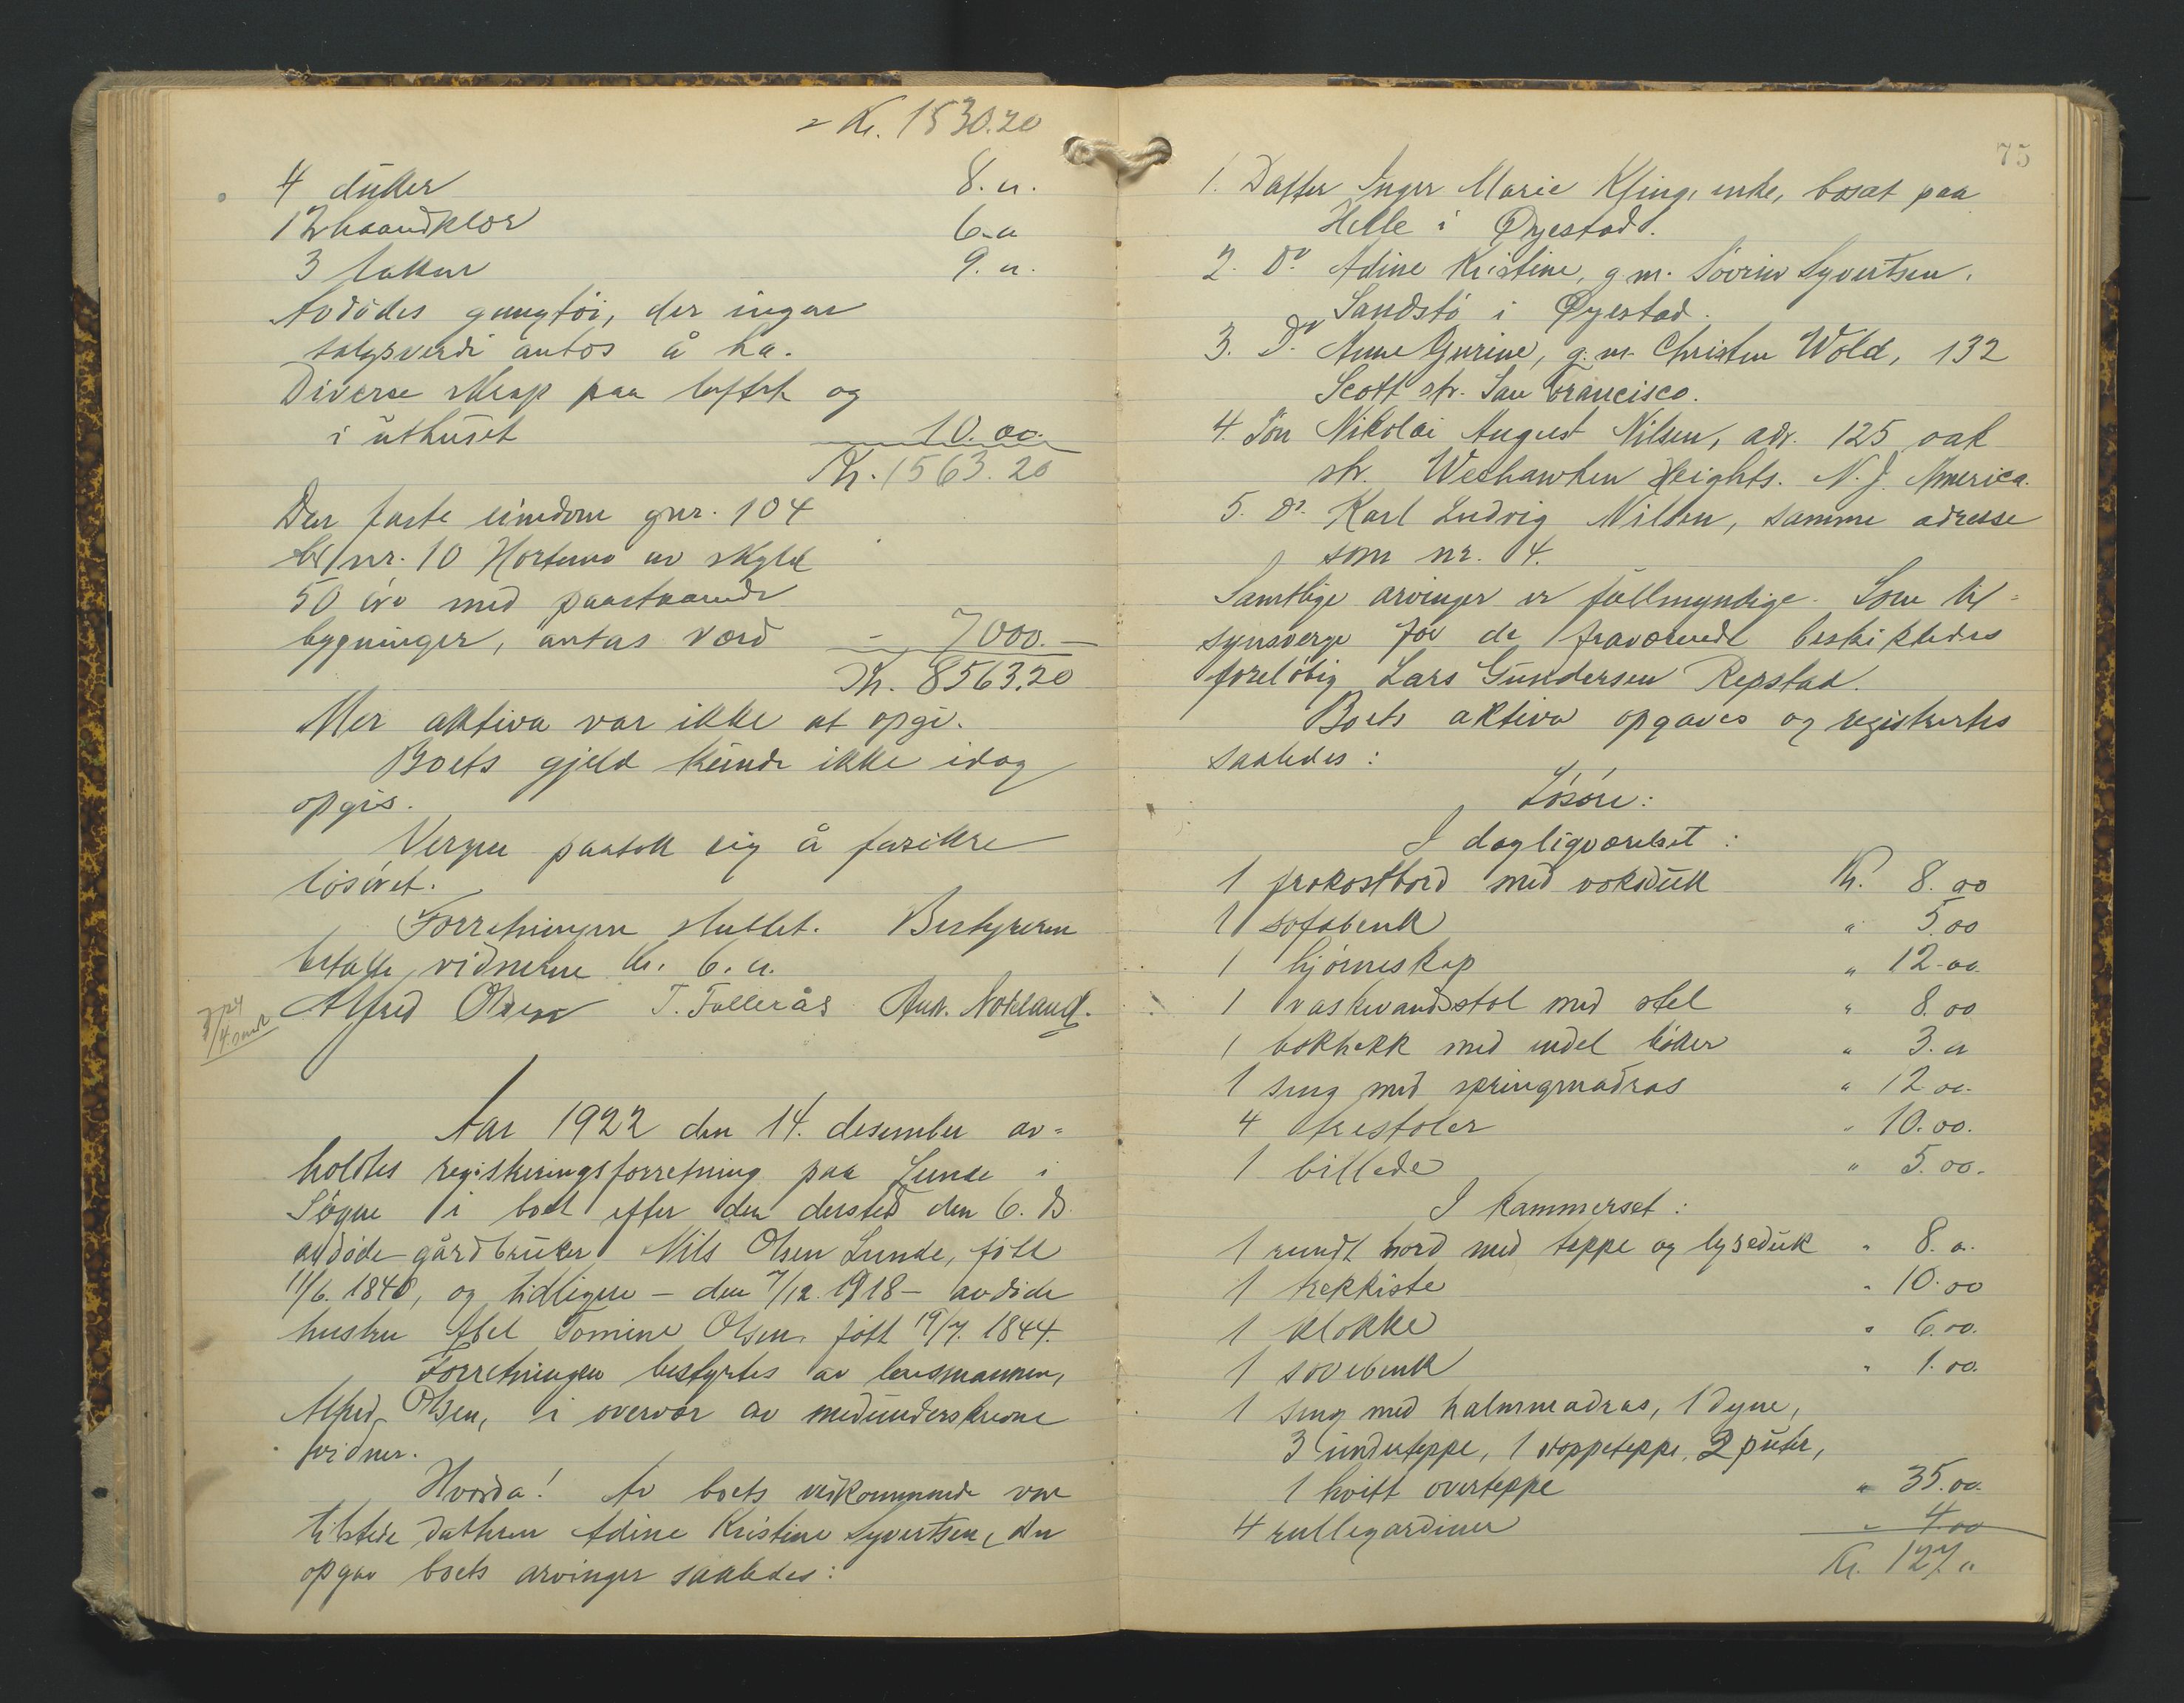 = Kr. 1530.20
4 duker 8.00
12 haandklær 6.00
3 lakener 9.00
Avdødes gangtøi, der ingen
salgsverdi antas å ha.
Diverse skrap paa loftet og
i uthuset 10.00
Kr. 1563.20
Den faste eiendom gnr. 104
br.nr. 10 Hortemo av skyld
50 øre med paastaaende
bygninger, antas værd - 7000.-
Kr. 8563.20
Mer aktiva var ikke at opgi.
Boets gjeld kunde ikke idag
opgis.
Vergen paatok sig å forsikre
løsøret.
Forretningen sluttet. Bestyreren
betalte vidnerne kr. 6.00.
Alfred Olsen T. Follerås And. Nokland.
Aar 1922 den 14. desember av=
holdtes registreringsforretning paa Lunde i
Søgne i boet efter den dersted den 6. ds.
avdøde gårdbruker Nils Olsen Lunde, født
11/6. 1840, og tidligere - den 7/12. 1918 - avdøde
hustru Abel Tomine Olsen, født 19/7. 1844.
Forretningen bestyrtes av lensmannen,
Alfred Olsen, i overvær av medunderskrevne
vidner.
Hvorda! Av boets vedkommende var
tilstede datteren Adine Kristine Syvertsen, der
opgav boets arvinger saaledes:
75
1. Datter Inger Marie Kling, enke, bosat paa
Helle i Øyestad.
2. Do. Adine Kristine, g.m. Søvrin Syvertsen,
Sandstø i Øyestad.
3. Do. Anne Gurine, g.m. Christen Wold, 132
Scott str. San Francisco.
4. Søn Nikolai August Nilsen, adr. 125 oak
str. Weehawken Heights. N.J. America.
5. Do. Karl Ludvig Nilsen, samme adresse
som nr. 4.
Samtlige arvinger er fullmyndige. Som til=
synsverge for de fraværende beskikkedes
foreløbig Lars Gundersen Repstad.
Boets aktiva opgaves og registrertes
saaledes:
Løsøre:
I dagligværelset:
1 frokostbord med voksduk Kr. 8.00
1 sofabenk " 5.00
1 hjørneskap " 12.00
1 vaskevandsstol med stel " 8.00
1 bokhekk med endel bøker " 3.00
1 seng med springmadras " 12.00
4 trestoler " 10.00.
1 billede " 5.00.
I kammerset:
1 rundt bord med teppe og lyseduk " 8.00
1 trekkiste " 10.00
1 klokke " 6.00.
1 sovebenk " 1.00.
1 seng med halmmadras, 1 dyne,
3 underteppe, 1 stoppeteppe, 2 puter,
1 hvitt overteppe " 35.00.
4 rullegardiner " 4.00
Kr. 127."